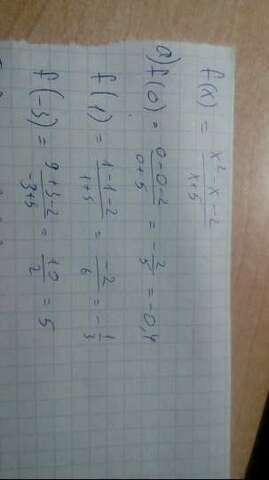 f(x) = (x² - x - 2)/(x + 5)
a) f(0) = (0 - 0 - 2)/(0 + 5) = -2/5 = -0,4
f(1) = (1 - 1 - 2)/(1 + 5) = -2/6 = -1/3
f(-3) = (9 + 3 - 2)/(-3 + 5) = 10/2 = 5